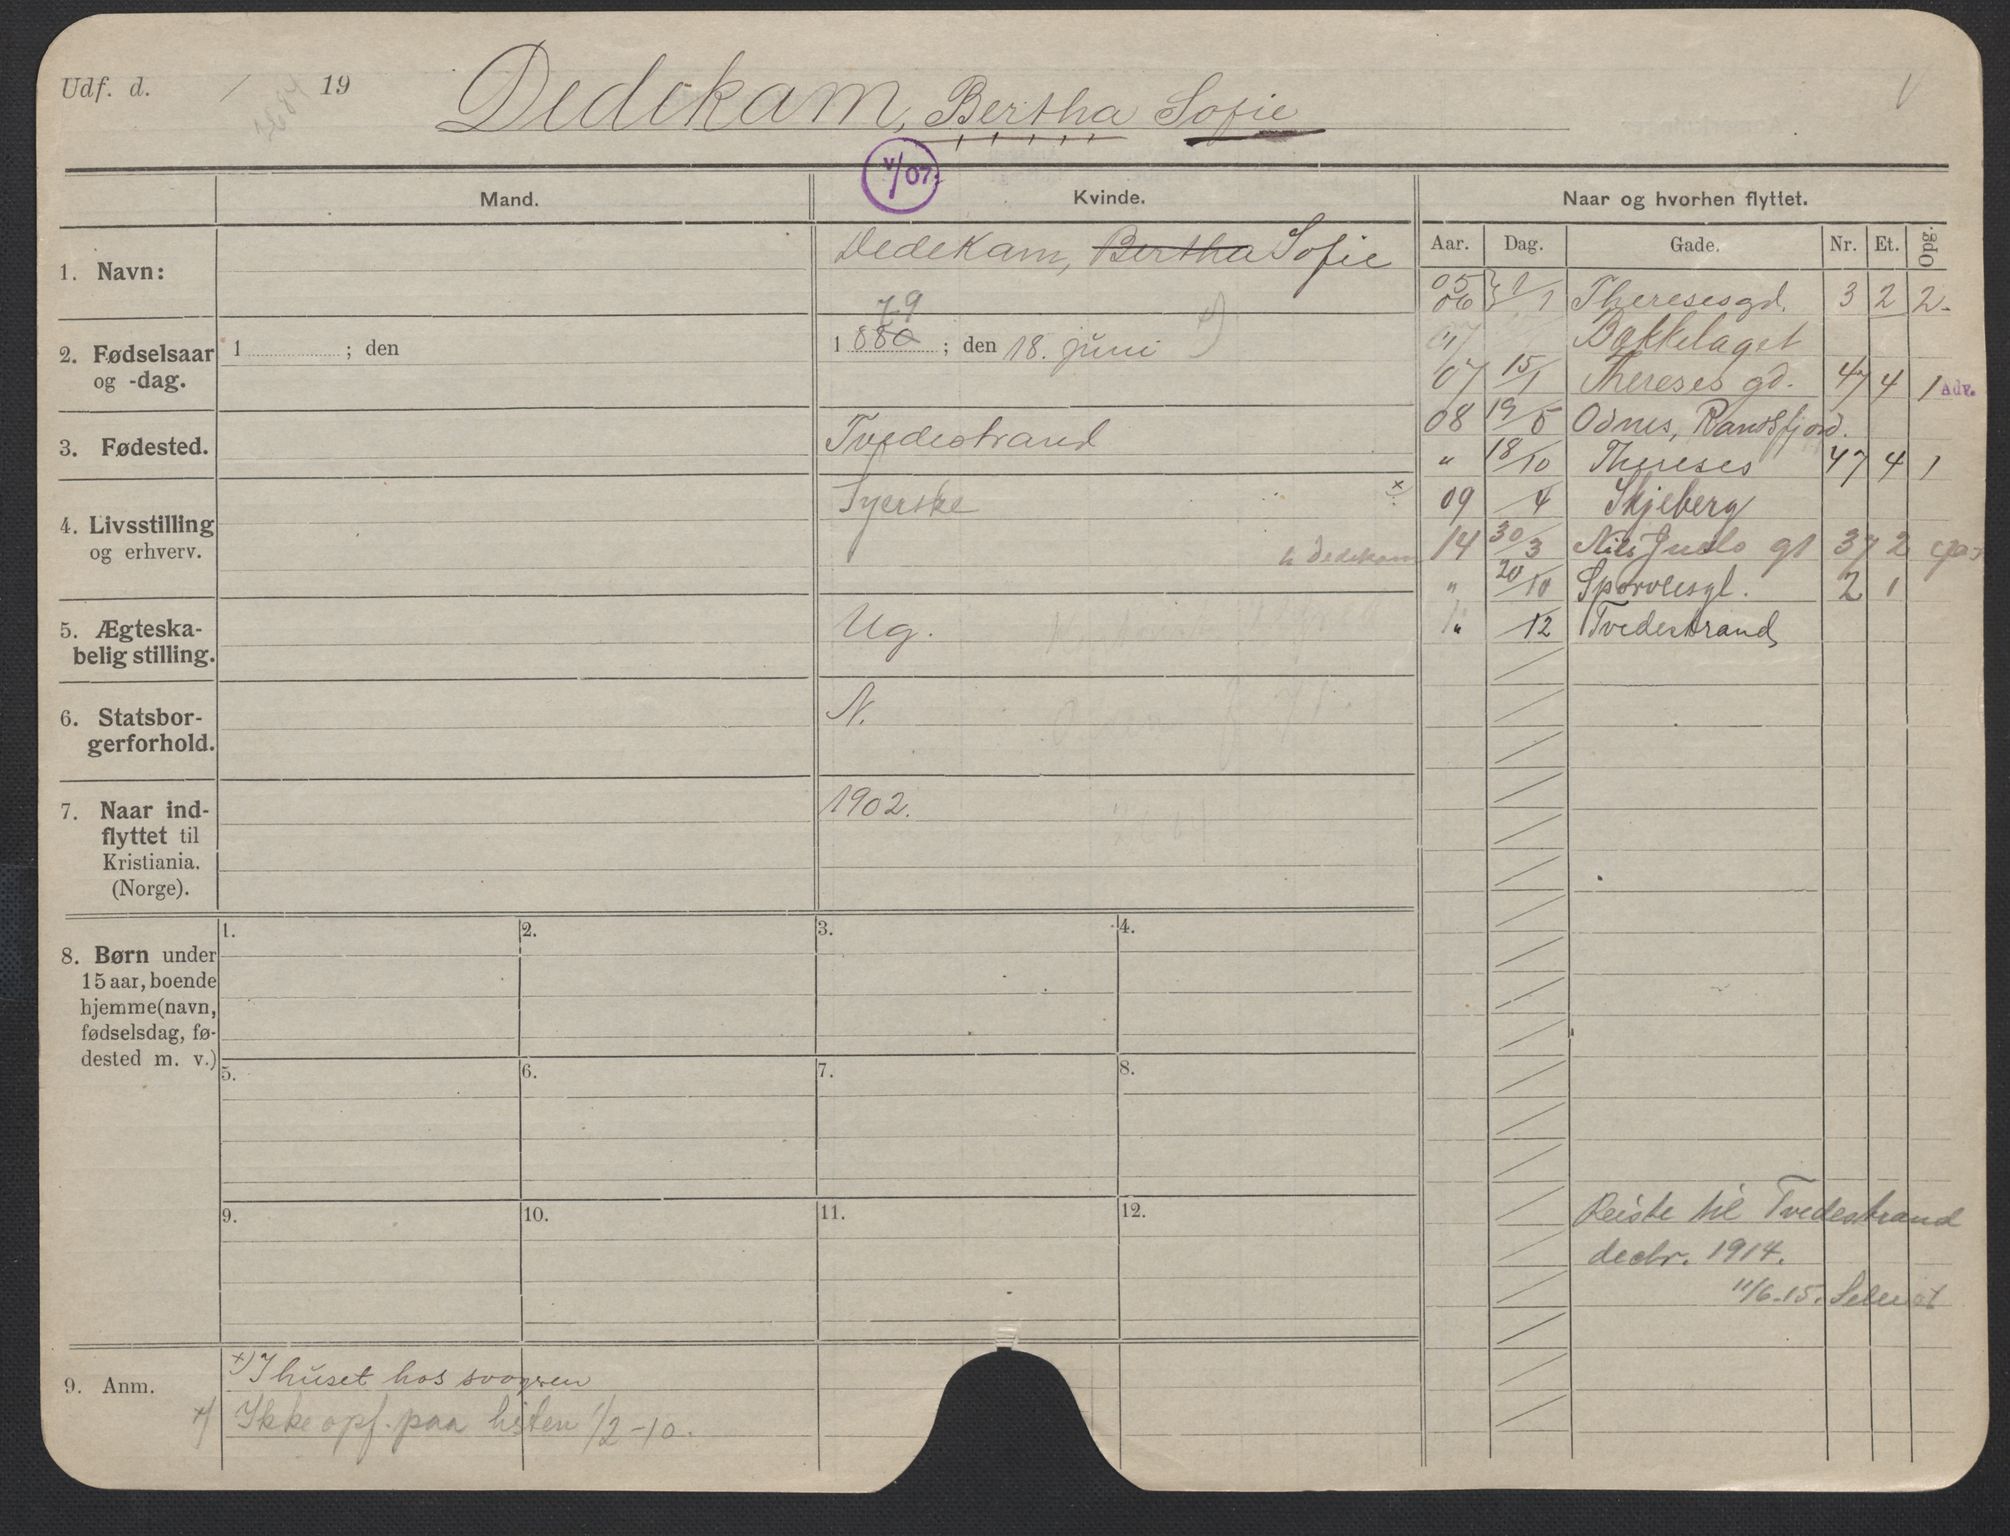 Udf. d. / 19
Dedekam, Bertha Sofie
V/07.
Mand.
Kvinde.
Naar og hvorhen flyttet.
Aar. Dag. Gade. Nr. Et. Opg.
1. Navn:
Dedekam, Bertha Sofie
2. Fødselsaar og -dag.
1 ; den
79
1 880 ; den 18. juni x)
3. Fødested.
Tvedestrand
4. Livsstilling og erhverv.
Syerske x)
h Dedekam
5. Ægteska-
belig stilling.
Ug.
6. Statsbor-
gerforhold.
N.
7. Naar ind-
flyttet til
Kristiania.
(Norge).
1902.
05
06 } 1/1 Theresesgd. 3 2 2-
07 Bakkelaget
07 15/1 Thereses gd. 47 4 1 Adv.
08 19/5 Odnes, Randsfjord.
" 18/10 Thereses 47 4 1
09 /4 Skjeberg
14 30/3 Nils Juels gt 37 2
" 20/10 Sporveisgt. 2 1
" /12 Tvedestrand
Reiste til Tvedestrand
decbr. 1914.
11/6-15.
8. Børn under
15 aar, boende
hjemme (navn,
fødselsdag, fø-
dested m. v.)
1. 2. 3. 4.
5. 6. 7. 8.
9. 10. 11. 12.
9. Anm.
x) I huset hos svogren
x) Ikke opf. paa listen 1/2-10.